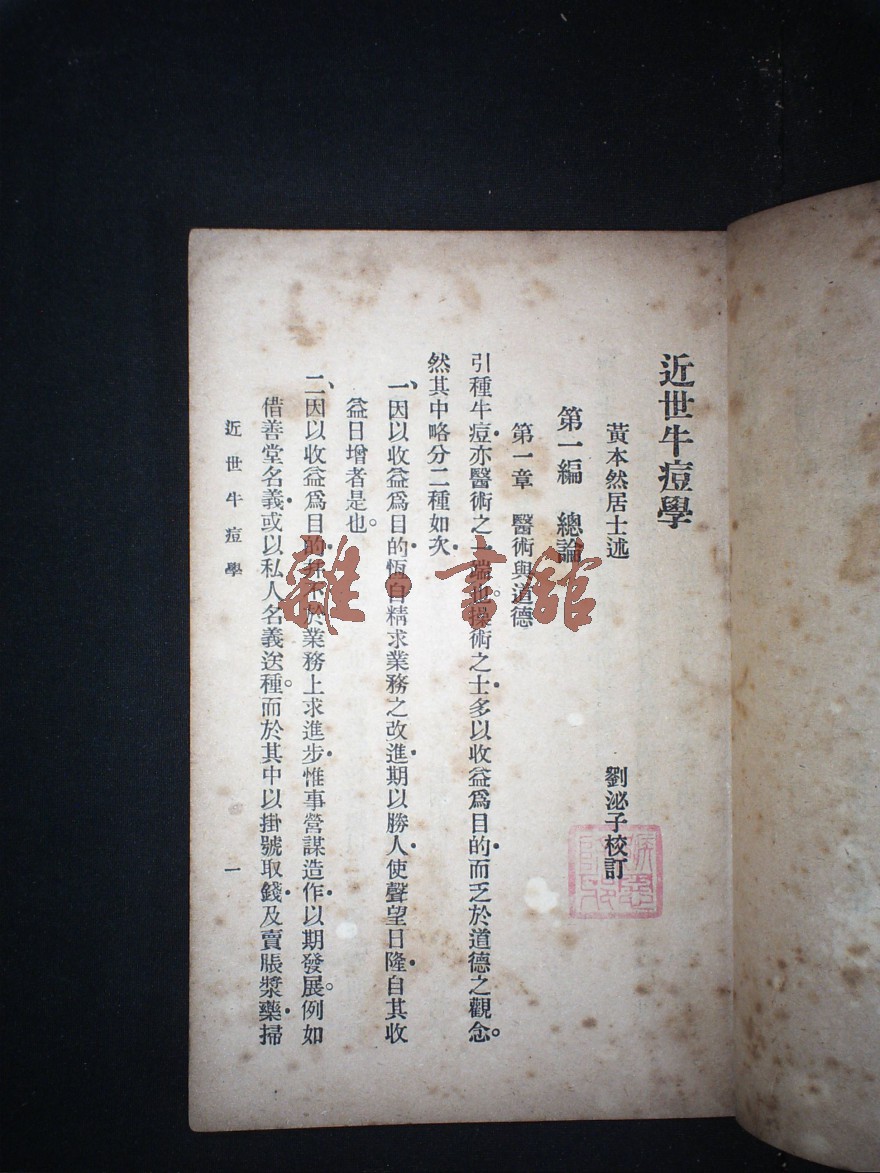 近世牛痘學
黃本然居士述　劉泌子校訂
第一編　總論
第一章　醫術與道德
引種牛痘・亦醫術之一端也。操術之士・多以收益爲目的・而乏於道德之觀念。
然其中略分二種如次・
一、因以收益爲目的・恆自精求業務之改進・期以勝人・使聲望日隆・自其收
益日增者是也。
二、因以收益爲目的・并不於業務上求進步・惟事營謀造作・以期發展。例如
借善堂名義・或以私人名義送種。而於其中以掛號取錢・及賣脹漿藥・掃
近世牛痘學
一
雜・書館